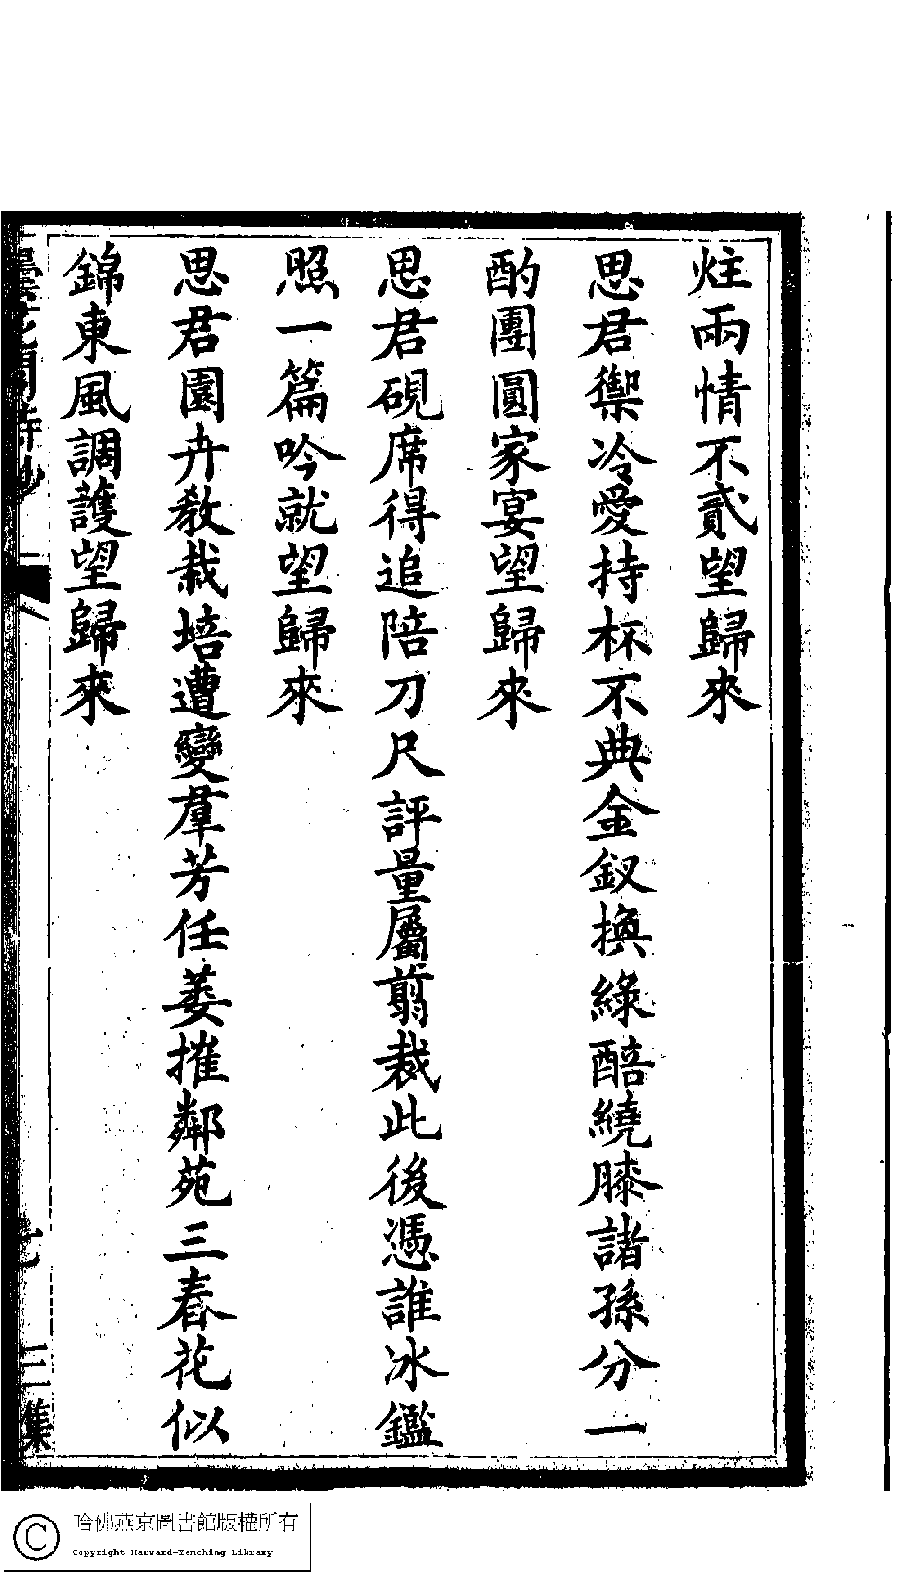 炷兩情不貳望歸來
思君禦冷愛持杯不典金釵換綠醅繞膝諸孫分一
酌團圓家宴望歸來
思君硯席得追陪刀尺評量屬翦裁此後憑誰冰鑑
照一篇吟就望歸來
思君園卉教栽培遭變羣芳任萎摧鄰苑三春花似
錦東風調護望歸來
三集
哈佛燕京圖書館版權所有
Copyright Harvard-Yenching Library